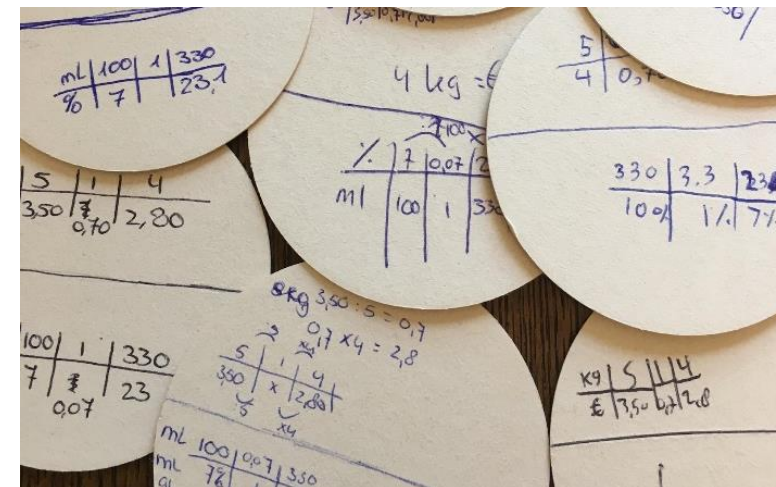 mL | 100 | 1 | 330
% | 7 | | 23,1
4 kg = €
: 100 x
% | 7 | 0,07 | 2
ml | 100 | 1 | 330
5
4 | 0,7
330 | 3.3 | 23
100% | 1% | 7%
5 | 1 | 4
3,50 | 0,70 | 2,80
100 | 1 | 330
7 | 0,07 | 23
kg 3,50 : 5 = 0,7
0,7 x4 = 2,8
5 | 1 | 4
3,50 | x | 2,80
:5 x4
mL 100 | 0,07 | 330
mL 7%
kg | 5 | 1 | 4
€ | 3,50 | 0,7 | 2,8